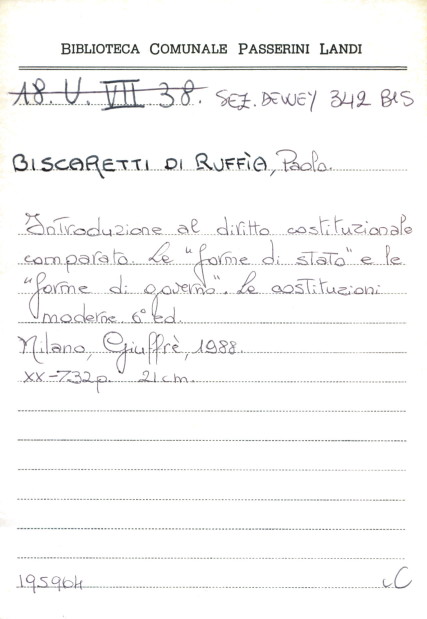 BIBLIOTECA COMUNALE PASSERINI LANDI
18. U. VII 38. SEZ. DEWEY 342 BIS
BISCARETTI DI RUFFÌA, Paolo.
Introduzione al diritto costituzionale
comparato. Le "forme di stato" e le
"forme di governo". Le costituzioni
moderne. 6° ed.
Milano, Giuffrè, 1988.
XX-732 p. 21 cm.
195964